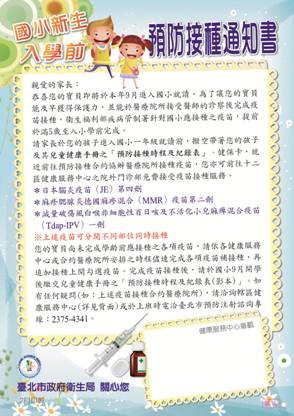 國小新生
入學前
預防接種通知書
親愛的家長：
恭喜您的寶貝即將於本年9月進入國小就讀，為了讓您的寶貝
能及早獲得保護力，並能於醫療院所接受醫師的診察後完成疫
苗接種，衛生福利部疾病管制署針對國小應接種之疫苗，提前
於滿5歲至入小學前完成。
請家長於您的孩子進入國小一年級就讀前，撥空帶著您的孩子
及其兒童健康手冊之「預防接種時程及紀錄表」、健保卡，就
近前往預防接種合約醫療院所接種疫苗，您亦可前往十二
區健康服務中心之院外門診部免費接受疫苗接種服務。
＊日本腦炎疫苗（JE）第四劑
＊麻疹腮腺炎德國麻疹混合（MMR）疫苗第二劑
＊減量破傷風白喉非細胞性百日咳及不活化小兒麻痺混合疫苗
（Tdap-IPV）一劑
※上述疫苗可分開不同部位同時接種
您的寶貝尚未完成學齡前應接種之各項疫苗，請依各健康服務
中心或合約醫療院所安排之時程儘速完成各項疫苗補接種，再
追加接種上開勾選疫苗。完成疫苗接種後，請於國小9月開學
後繳交兒童健康手冊之「預防接種時程及紀錄表(影本)」。如
有任何疑問(如：上述疫苗接種合約醫療院所)，請洽詢轄區健
康服務中心(詳見背面)或於上班時電洽臺北市預防注射諮詢專
線：2375-4341。
健康服務中心章戳
臺北市政府衛生局 關心您